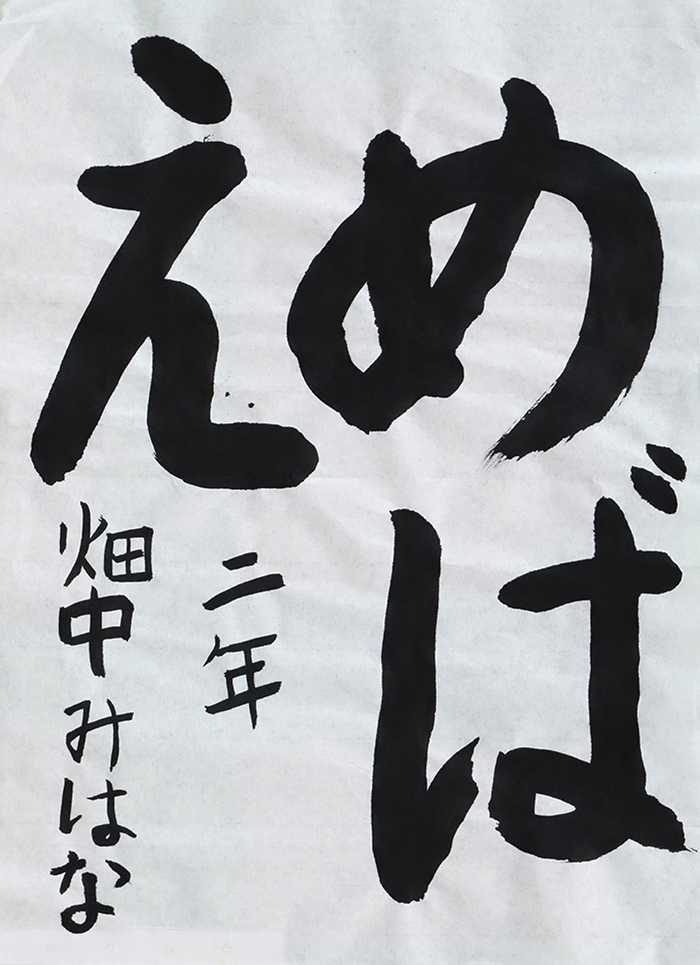 めば
え
二年
畑中みはな